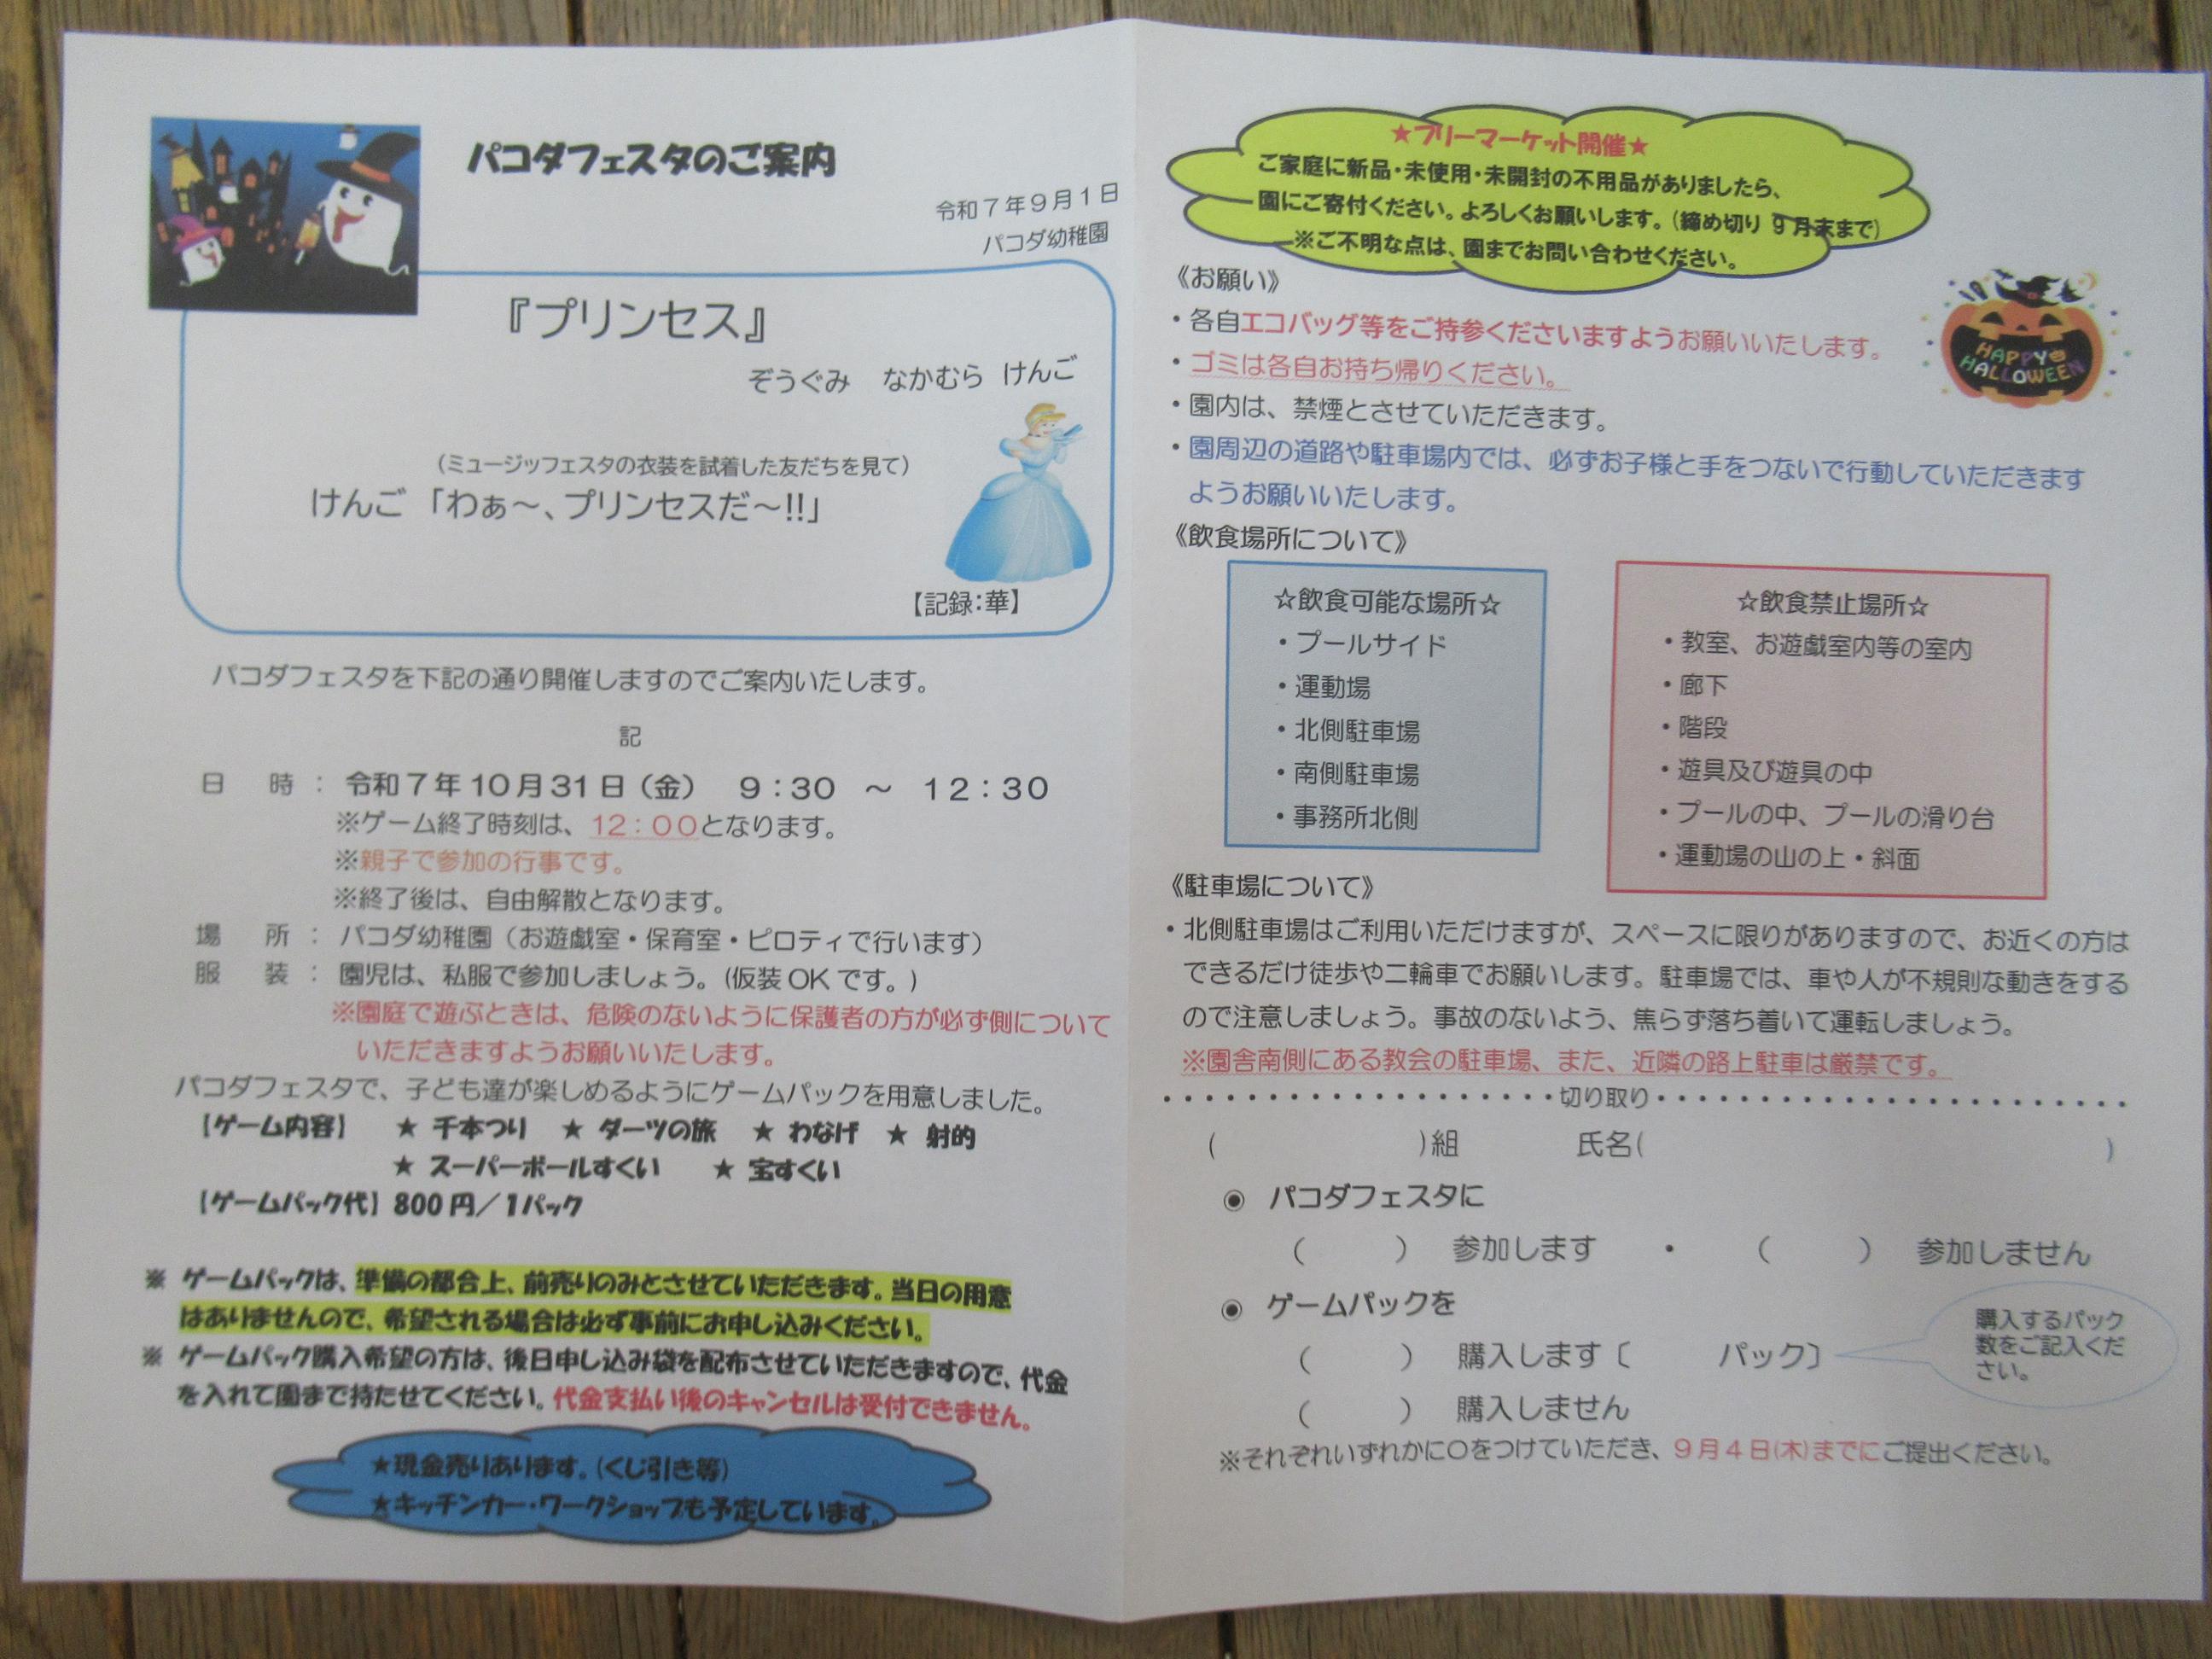 パコダフェスタのご案内
令和７年９月１日
パコダ幼稚園
『プリンセス』
ぞうぐみ　なかむら けんご
（ミュージッフェスタの衣装を試着した友だちを見て）
けんご 「わぁ～、プリンセスだ～!!」
【記録:華】
パコダフェスタを下記の通り開催しますのでご案内いたします。
記
日　時 ： 令和７年10月31日（金）　9：30 ～ 12：30
※ゲーム終了時刻は、12：00となります。
※親子で参加の行事です。
※終了後は、自由解散となります。
場　所 ： パコダ幼稚園（お遊戯室・保育室・ピロティで行います）
服　装 ： 園児は、私服で参加しましょう。(仮装 OK です。)
※園庭で遊ぶときは、危険のないように保護者の方が必ず側について
いただきますようお願いいたします。
パコダフェスタで、子ども達が楽しめるようにゲームパックを用意しました。
【ゲーム内容】　★ 千本つり　★ ダーツの旅　★ わなげ　★ 射的
★ スーパーボールすくい　★ 宝すくい
【ゲームパック代】800 円／1パック
※ ゲームパックは、準備の都合上、前売りのみとさせていただきます。当日の用意
はありませんので、希望される場合は必ず事前にお申し込みください。
※ ゲームパック購入希望の方は、後日申し込み袋を配布させていただきますので、代金
を入れて園まで持たせてください。代金支払い後のキャンセルは受付できません。
★現金売りあります。(くじ引き等)
★キッチンカー・ワークショップも予定しています。
★フリーマーケット開催★
ご家庭に新品・未使用・未開封の不用品がありましたら、
園にご寄付ください。よろしくお願いします。(締め切り 9月末まで)
※ご不明な点は、園までお問い合わせください。
HAPPY
HALLOWEEN
《お願い》
・各自エコバッグ等をご持参くださいますようお願いいたします。
・ゴミは各自お持ち帰りください。
・園内は、禁煙とさせていただきます。
・園周辺の道路や駐車場内では、必ずお子様と手をつないで行動していただきます
ようお願いいたします。
《飲食場所について》
☆飲食可能な場所☆
・プールサイド
・運動場
・北側駐車場
・南側駐車場
・事務所北側
☆飲食禁止場所☆
・教室、お遊戯室内等の室内
・廊下
・階段
・遊具及び遊具の中
・プールの中、プールの滑り台
・運動場の山の上・斜面
《駐車場について》
・北側駐車場はご利用いただけますが、スペースに限りがありますので、お近くの方は
できるだけ徒歩や二輪車でお願いします。駐車場では、車や人が不規則な動きをする
ので注意しましょう。事故のないよう、焦らず落ち着いて運転しましょう。
※園舎南側にある教会の駐車場、また、近隣の路上駐車は厳禁です。
・・・・・・・・・・・・・・・・・・・切り取り・・・・・・・・・・・・・・・・・・・・・・・
（　　　　　　　　）組　　　　氏名（　　　　　　　　　　　　　　　　　　）
◉ パコダフェスタに
（　　　） 参加します　・　（　　　） 参加しません
◉ ゲームパックを
（　　　） 購入します〔　　　パック〕
購入するパック
数をご記入くだ
さい。
（　　　） 購入しません
※それぞれいずれかに〇をつけていただき、９月４日(木)までにご提出ください。